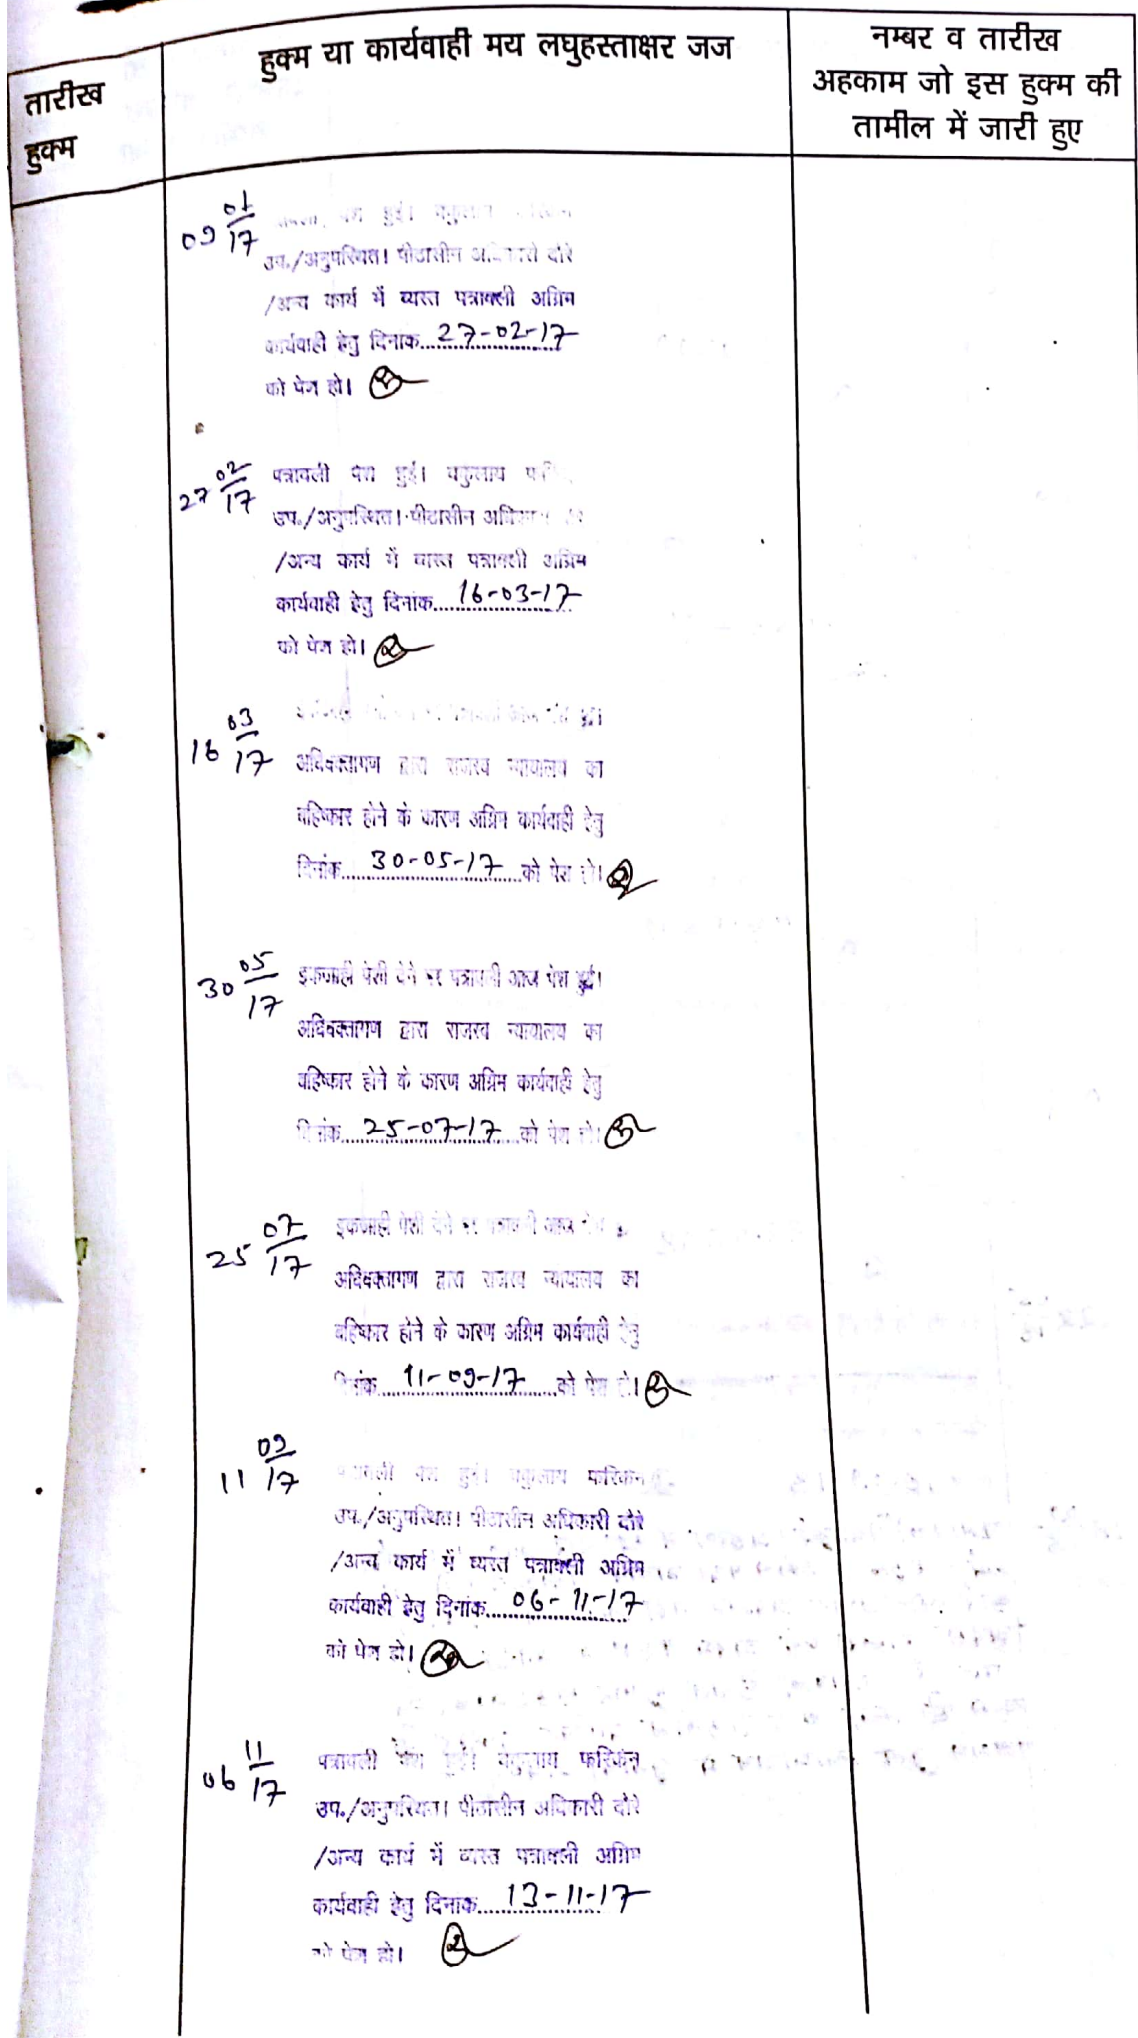 तारीख
हुक्म
हुक्म या कार्यवाही मय लघुहस्ताक्षर जज
नम्बर व तारीख
अहकाम जो इस हुक्म की
तामील में जारी हुए
09 01/17
पेश हुई।
उप./अनुपस्थित। पीठासीन दौरे
/अन्य कार्य में व्यस्त पत्रावली अग्रिम
कार्यवाही हेतु दिनांक 27-02-17
को पेश हो।
27 02/17
पत्रावली पेश हुई। वकुलाय
उप./अनुपस्थित। पीठासीन
/अन्य कार्य में व्यस्त पत्रावली अग्रिम
कार्यवाही हेतु दिनांक 16-03-17
को पेश हो।
16 03/17
अधिवक्तागण द्वारा राजस्व न्यायालय का
बहिष्कार होने के कारण अग्रिम कार्यवाही हेतु
दिनांक 30-05-17 को पेश हो।
30 05/17
इकजाही पेशी देने पर पत्रावली आज पेश हुई।
अधिवक्तागण द्वारा राजस्व न्यायालय का
बहिष्कार होने के कारण अग्रिम कार्यवाही हेतु
दिनांक 25-07-17 को पेश हो।
25 07/17
इकजाही पेशी देने पर आज
अधिवक्तागण द्वारा राजस्व न्यायालय का
बहिष्कार होने के कारण अग्रिम कार्यवाही हेतु
दिनांक 11-09-17 को पेश हो।
11 09/17
पत्रावली पेश हुई। वकुलाय फरिकेन
उप./अनुपस्थित। पीठासीन अधिकारी दौरे
/अन्य कार्य में व्यस्त पत्रावली अग्रिम
कार्यवाही हेतु दिनांक 06-11-17
को पेश हो।
06 11/17
पत्रावली पेश हुई। वकुलाय फरिकेन
उप./अनुपस्थित। पीठासीन अधिकारी दौरे
/अन्य कार्य में व्यस्त पत्रावली अग्रिम
कार्यवाही हेतु दिनांक 13-11-17
को पेश हो।